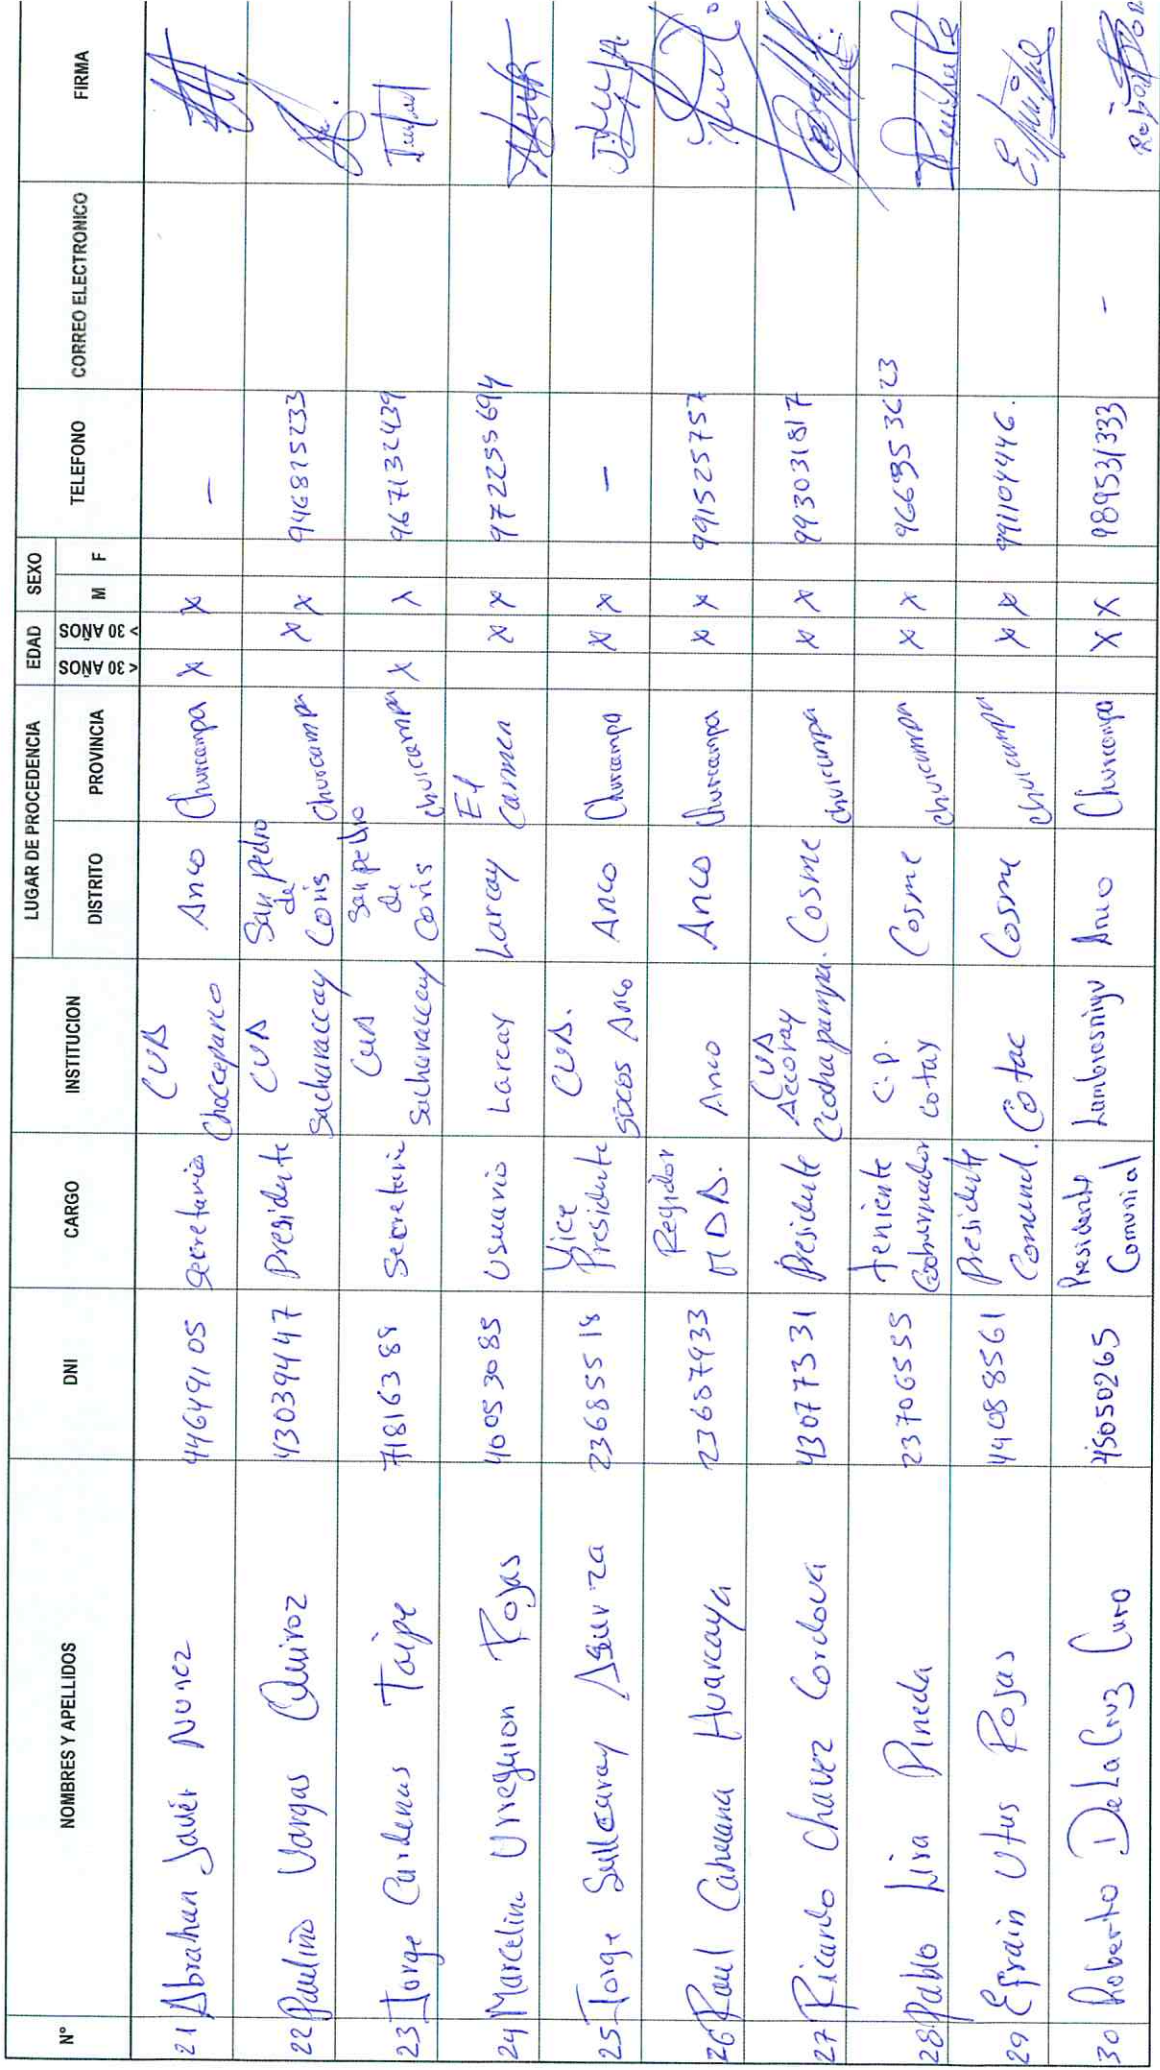 N° NOMBRES Y APELLIDOS DNI CARGO INSTITUCION LUGAR DE PROCEDENCIA EDAD SEXO TELEFONO CORREO ELECTRONICO FIRMA
DISTRITO PROVINCIA < 30 AÑOS > 30 AÑOS M F
21 Abrahan Javier Nunez 44649105 secretario CUA Chocceparco Anco Churcampa x x -
22 Paulino Vargas Quiroz 43039447 Presidente CUA Sacharaccay San pedro de Coris Churcampa x x 946825233
23 Jorge Cardenas Taipe 71816388 Secretario CUA Sacharaccay San pedro de Coris churcampa x x 967132439
24 Marcelino Urreguion Rojas 40053085 Usuario Larcay Larcay El Carmen x x 972255694
25 Jorge Sullcaray 23685518 Vice Presidente CUA. Socos Anco Anco Churcampa x x -
26 Raul Huarcaya 23687933 Regidor MDA. Anco Anco Churcampa x x 991525757
27 Ricardo Chavez Cordova 43077331 Presidente CUA Accoray Cosme churcampa x x 993031817
28 Pablo Lira Pineda 23706555 Teniente Gobernador C.P. Cotay Cosme churcampa x x
29 Efrain Utus Rojas 44088561 Presidente Comunal. Cotac Cosme churcampa x x 991104446.
30 Roberto De La Cruz Curo 45050265 Presidente Comunial Lambrasniyu Anco Churcampa x x 989531333 -